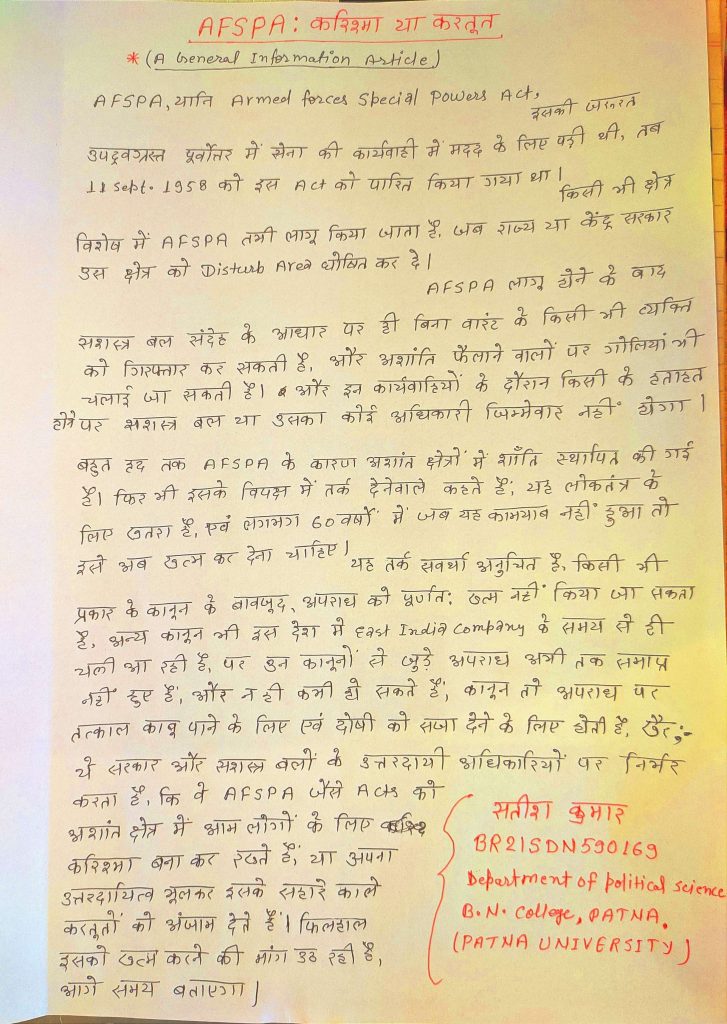 AFSPA: करिश्मा या करतूत
* (A General Information Article)
AFSPA, यानि Armed forces Special Powers Act, इसकी जरूरत
उपद्रवग्रस्त पूर्वोत्तर में सेना की कार्यवाही में मदद के लिए पड़ी थी, तब
11 Sept. 1958 को इस Act को पारित किया गया था। किसी भी क्षेत्र
विशेष में AFSPA तभी लागू किया जाता है, जब राज्य या केंद्र सरकार
उस क्षेत्र को Disturb Area घोषित कर दे।
AFSPA लागू होने के बाद
सशस्त्र बल संदेह के आधार पर ही बिना वारंट के किसी भी व्यक्ति
को गिरफ्तार कर सकती है, और अशांति फैलाने वालों पर गोलियां भी
चलाई जा सकती है। और इन कार्यवाहियों के दौरान किसी के हताहत
होने पर सशस्त्र बल या उसका कोई अधिकारी जिम्मेवार नहीं होगा।
बहुत हद तक AFSPA के कारण अशांत क्षेत्रों में शाँति स्थापित की गई
है। फिर भी इसके विपक्ष में तर्क देनेवाले कहते हैं, यह लोकतंत्र के
लिए खतरा है, एवं लगभग 60 वर्षों में जब यह कामयाब नहीं हुआ तो
इसे अब खत्म कर देना चाहिए। यह तर्क सवर्था अनुचित है, किसी भी
प्रकार के कानून के बावजूद, अपराध को पूर्णत: खत्म नहीं किया जा सकता
है, अन्य कानून भी इस देश में East India Company के समय से ही
चली आ रही है, पर उन कानूनों से जुड़े अपराध अभी तक समाप्त
नहीं हुए हैं, और न ही कभी हो सकते हैं, कानून तो अपराध पर
तत्काल काबू पाने के लिए एवं दोषी को सजा देने के लिए होती है, खैर;-
ये सरकार और सशस्त्र बलों के उत्तरदायी अधिकारियों पर निर्भर
करता है, कि वे AFSPA जैसे Acts को
अशांत क्षेत्र में आम लोगों के लिए
करिश्मा बना कर रखते हैं, या अपना
उत्तरदायित्व भूलकर इसके सहारे काले
करतूतों को अंजाम देते हैं। फिलहाल
इसको खत्म करने की मांग उठ रही है,
आगे समय बताएगा।
सतीश कुमार
BR21SDN590169
Department of political science
B.N. College, PATNA.
(PATNA UNIVERSITY)